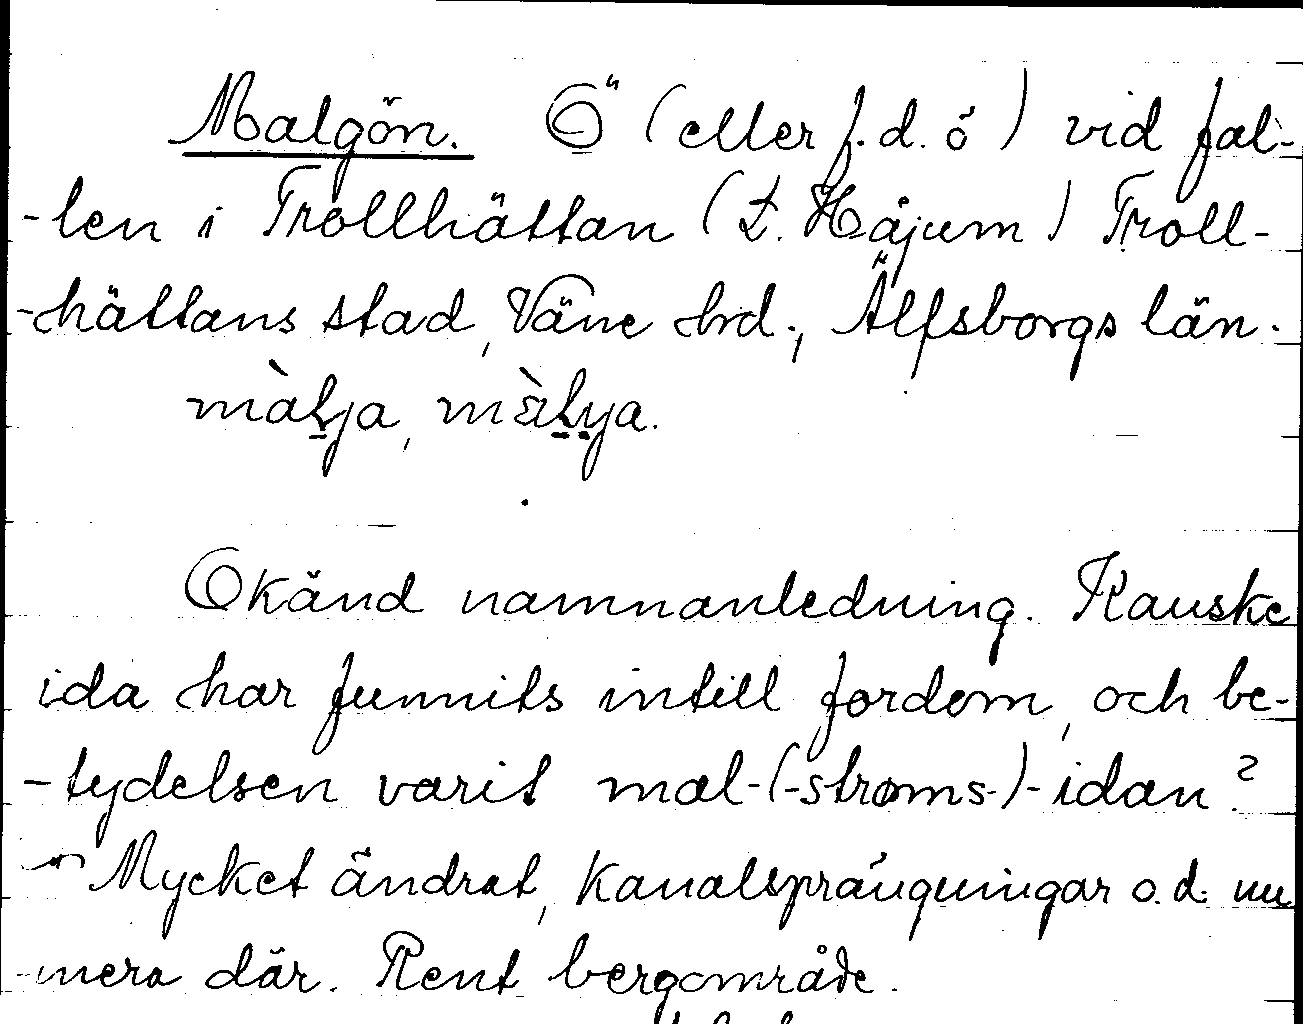 Malgön. Ö (eller f.d. ö) vid fal-
-len i Trollhättan (t. Håjum) Troll-
-hättans stad, Väne hrd., Älfsborgs län.
màlja,
Okänd namnanledning. Kanske
ida har funnits intill fordom, och be-
-tydelsen varit mal-(-stroms-)-idan?
Mycket ändrat, kanalsprängningar o.d. nu
-mera där. Rent bergområde.